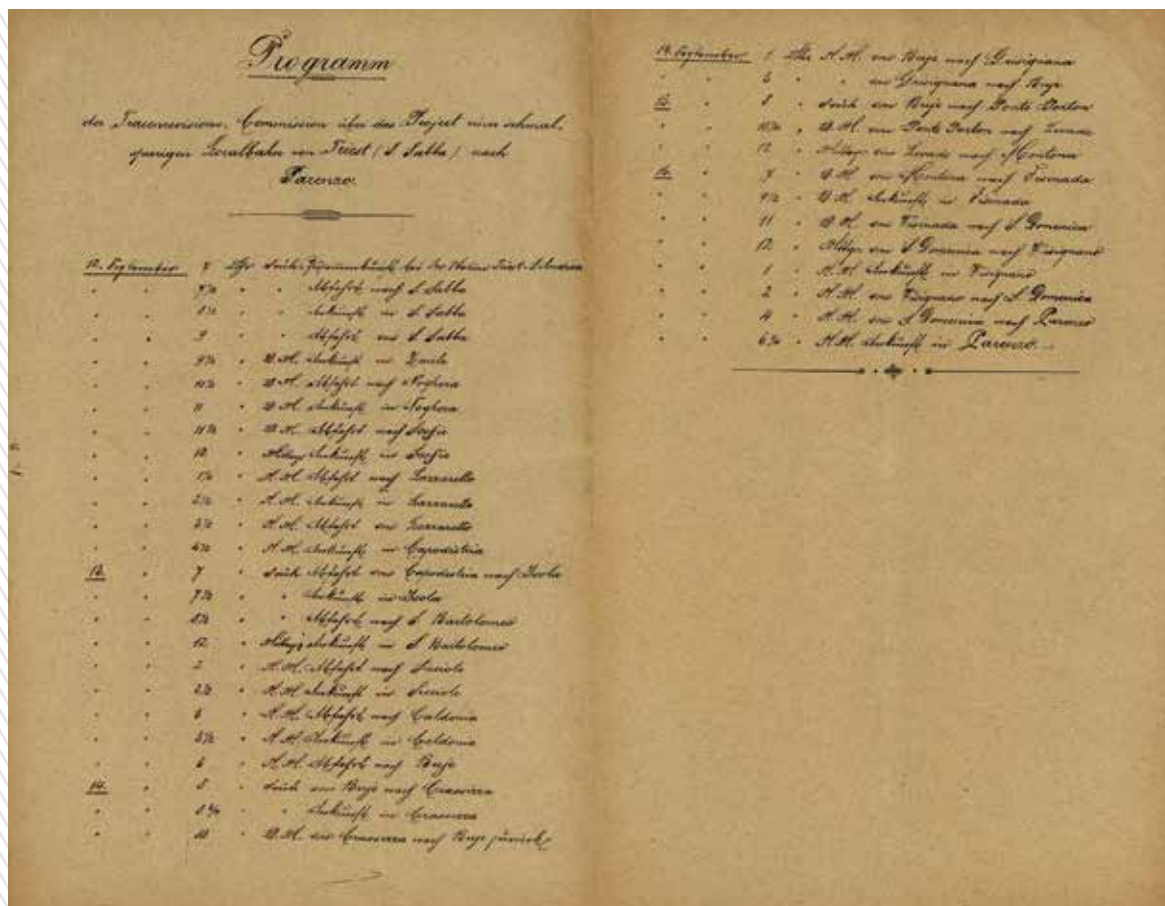 Programm
der Tracenrevisions-Commission über das Project einer schmal-
spurigen Localbahn von Triest (S. Sabba) nach
Parenzo.
12. September 7 Uhr Früh Zusammenkunft bei der Station Triest-S. Andrea
" " " " Abfahrt nach S. Sabba
" " 8½ " " Ankunft in S. Sabba
" " 9 " " Abfahrt von S. Sabba
" " 9½ " V.M. Ankunft in Zaule
" " 10½ " V.M. Abfahrt nach Noghera
" " 11 " V.M. Ankunft in Noghera
" " 11½ " V.M. Abfahrt nach
" " 12 " Mittag Ankunft in
" " 1½ " N.M. Abfahrt nach Lazzaretto
" " 2½ " N.M. Ankunft in Lazzaretto
" " 3½ " N.M. Abfahrt von Lazzaretto
" " 4½ " N.M. Ankunft in Capodistria
13. " 7 " Früh Abfahrt von Capodistria nach Isola
" " 7½ " " Ankunft in Isola
" " 8½ " " Abfahrt nach S. Bartolomeo
" " 12 " Mittags Ankunft in S. Bartolomeo
" " 2 " N.M. Abfahrt nach Sicciole
" " 2½ " N.M. Ankunft in Sicciole
" " " N.M. Abfahrt nach Caldonia
" " " N.M. Ankunft in Caldonia
" " 6 " N.M. Abfahrt nach Buje
14. " 8 " Früh von Buje nach
" " 8¾ " " Ankunft in
" " 10 " V.M. von nach Buje zurück
14. September 1 Uhr N.M. von Buje nach Grisignana
" " 5 " " von Grisignana nach Buje
15. " 8 " Früh von Buje nach Ponte Porton
" " 10½ " V.M. von Ponte Porton nach Levade
" " 12 " Mittag von Levade nach Montona
16. " 7 " V.M. von Montona nach Visinada
" " 9½ " V.M. Ankunft in Visinada
" " 11 " V.M. von Visinada nach S. Domenica
" " 12 " Mittgs. von S. Domenica nach Visignano
" " 1 " N.M. Ankunft in Visignano
" " 2 " N.M. von Visignano nach S. Domenica
" " 4 " N.M. von S. Domenica nach Parenzo
" " 6½ " N.M. Ankunft in Parenzo.